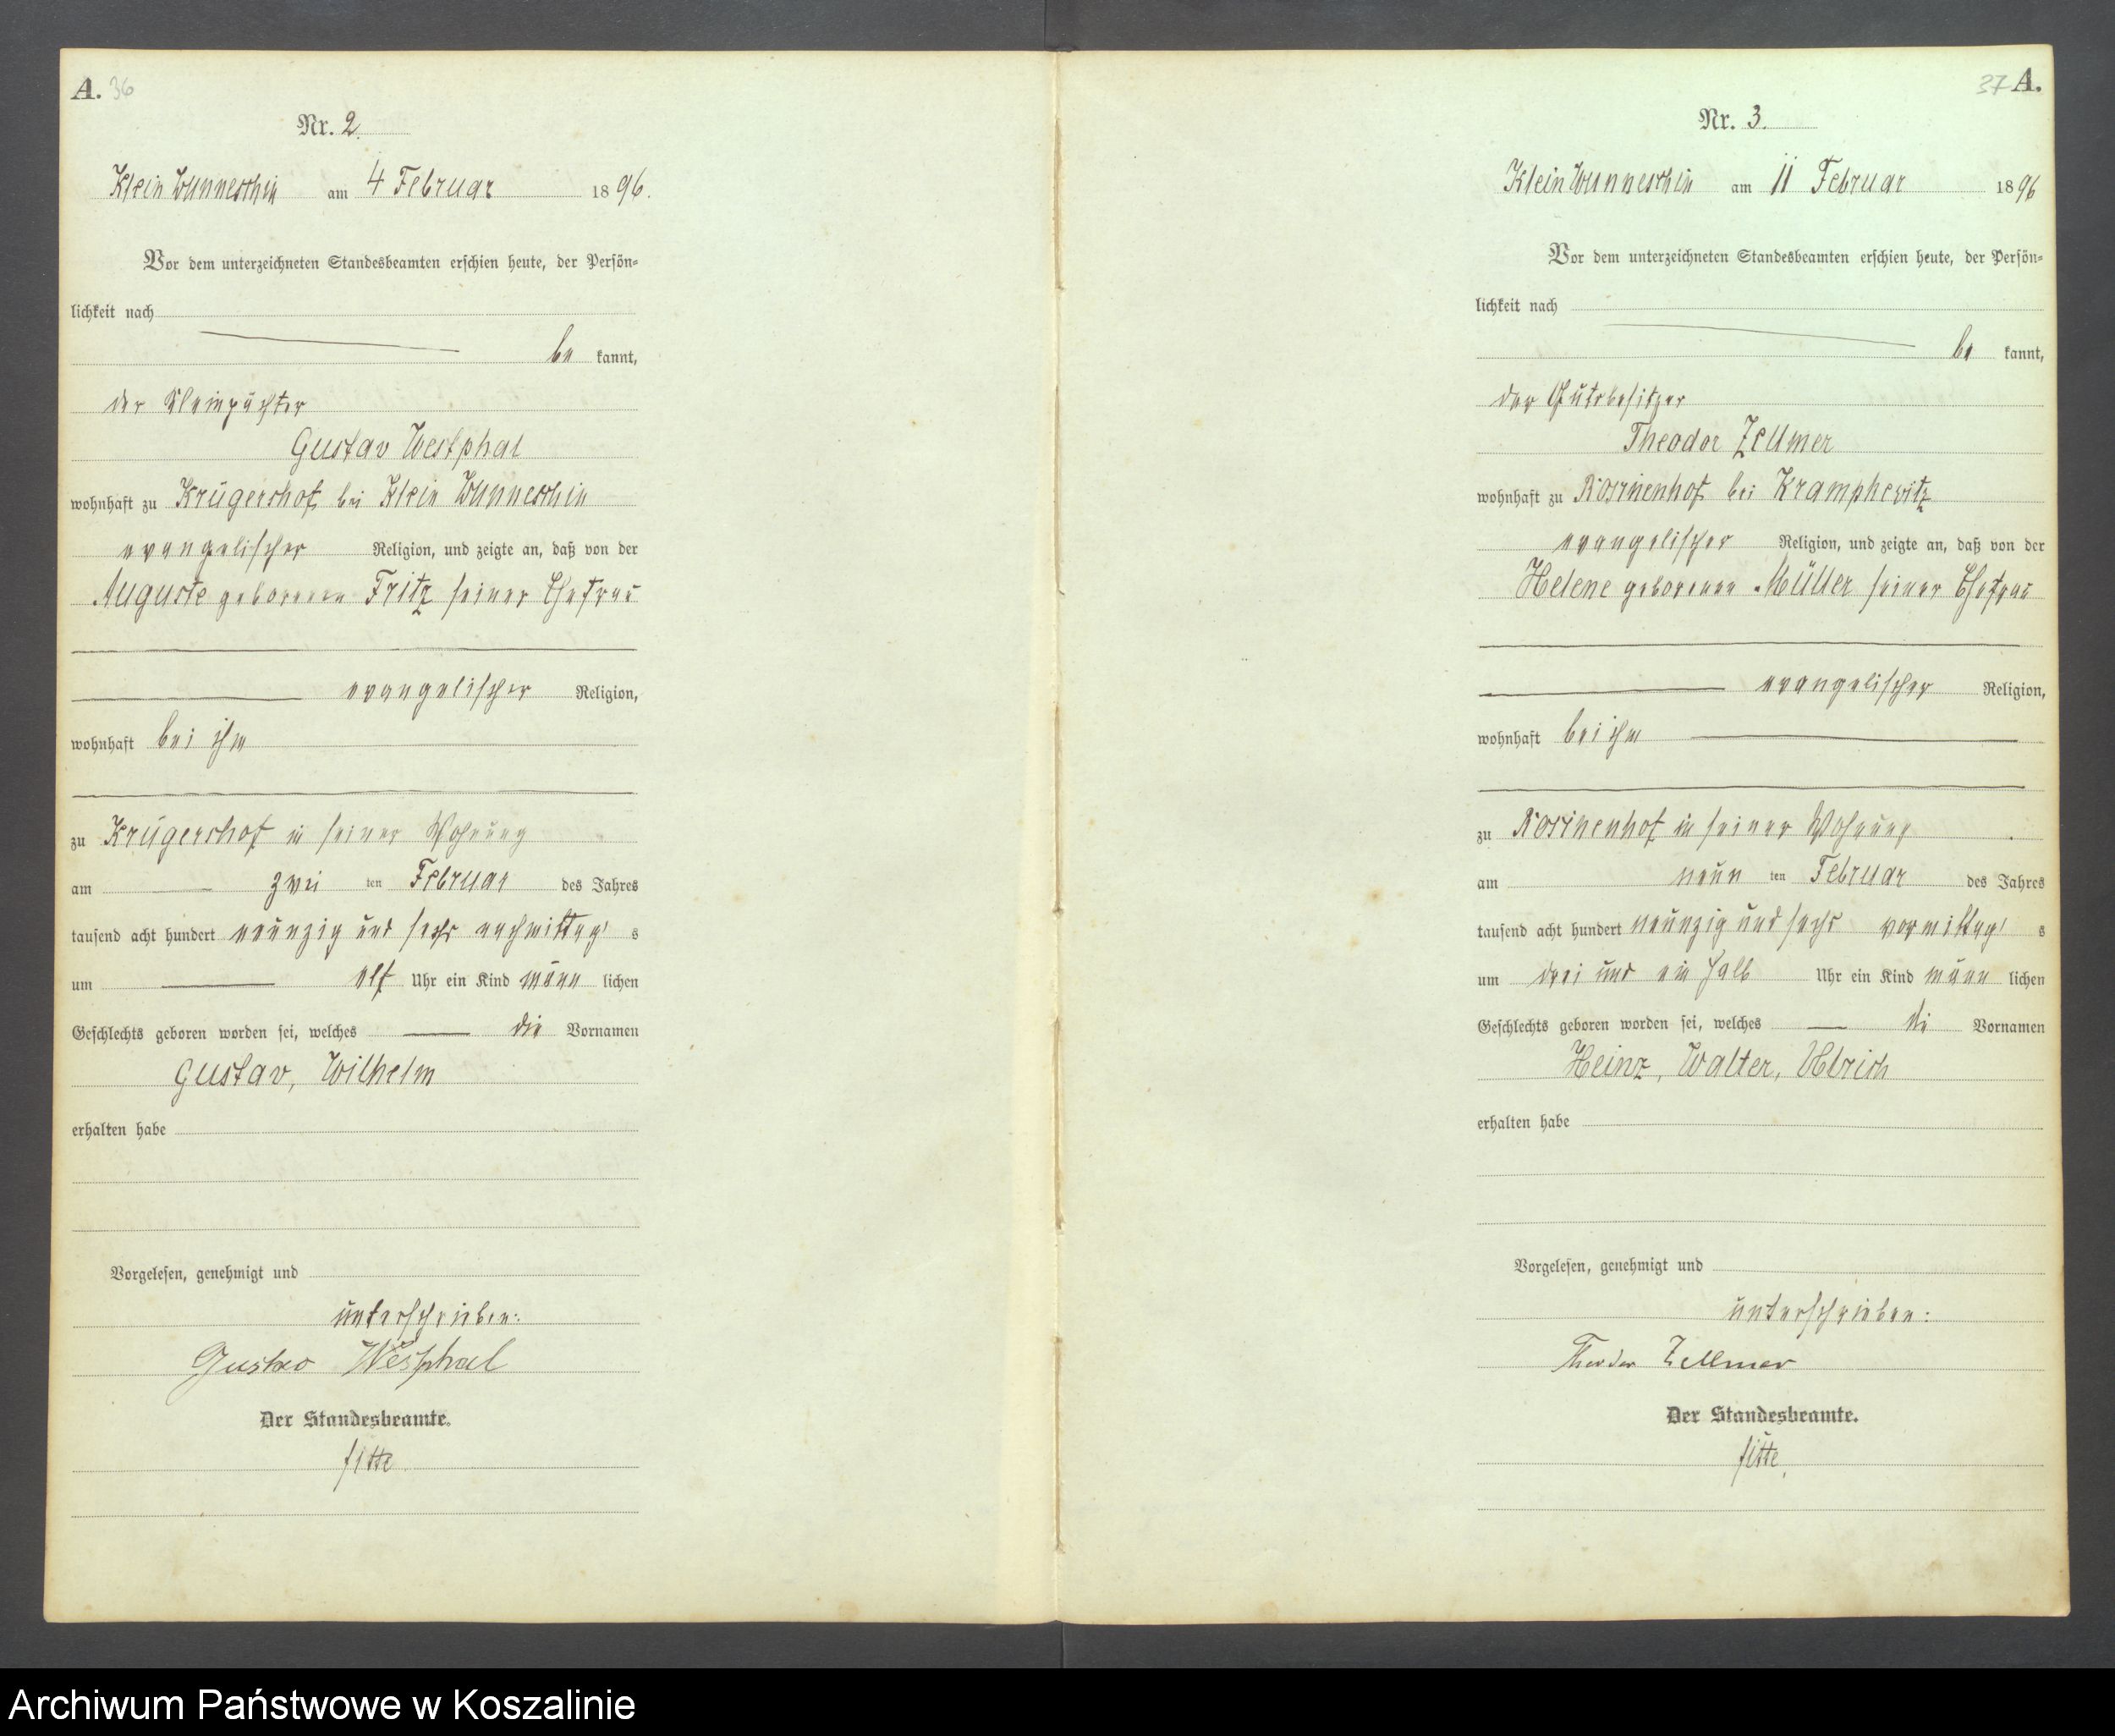 A. 36
Nr. 2.
Klein Wunneschin am 4 Februar 1896.
Vor dem unterzeichneten Standesbeamten erschien heute, der Persön-
lichkeit nach
be kannt,
der Kleinpächter
Gustav Westphal
wohnhaft zu Krügershof bei Klein Wunneschin
evangelischer Religion, und zeigte an, daß von der
Auguste geborenen Fritz seiner Ehefrau
evangelischer Religion,
wohnhaft bei ihm
zu Krügershof in seiner Wohnung
am zwei ten Februar des Jahres
tausend acht hundert neunzig und sechs nachmittag s
um elf Uhr ein Kind männ lichen
Geschlechts geboren worden sei, welches die Vornamen
Gustav, Wilhelm
erhalten habe
Vorgelesen, genehmigt und
unterschrieben:
Gustav Wesphal
Der Standesbeamte.
37 A.
Nr. 3.
Klein Wunneschin am 11 Februar 1896
Vor dem unterzeichneten Standesbeamten erschien heute, der Persön-
lichkeit nach
be kannt,
der Gutsbesitzer
Theodor Zellmer
wohnhaft zu Rosinenhof bei Kramphewitz
evangelischer Religion, und zeigte an, daß von der
Helene geborenen Müller seiner Ehefrau
evangelischer Religion,
wohnhaft bei ihm
zu Rosinenhof in seiner Wohnung
am neun ten Februar des Jahres
tausend acht hundert neunzig und sechs vormittag s
um drei und ein halb Uhr ein Kind männ lichen
Geschlechts geboren worden sei, welches die Vornamen
Heinz, Walter, Ulrich
erhalten habe
Vorgelesen, genehmigt und
unterschrieben:
Theodor Zellmer
Der Standesbeamte.
Archiwum Państwowe w Koszalinie